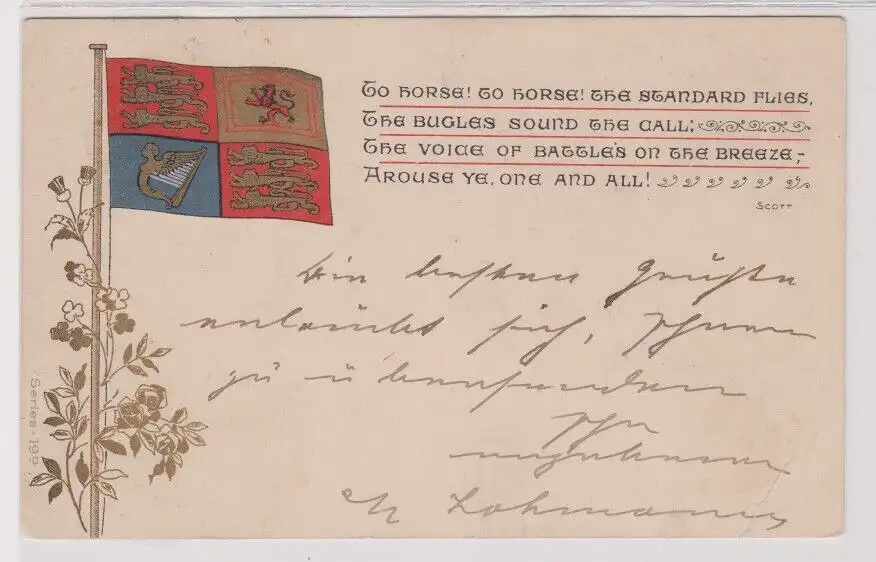 To horse! to horse! the standard flies,
The bugles sound the call;
The voice of battle's on the breeze,-
Arouse ye, one and all!
Scott
Die besten Grüße
erlaubt sich, Ihnen
zu übersenden
Ihr
ergebener
Lohmann
Series 190